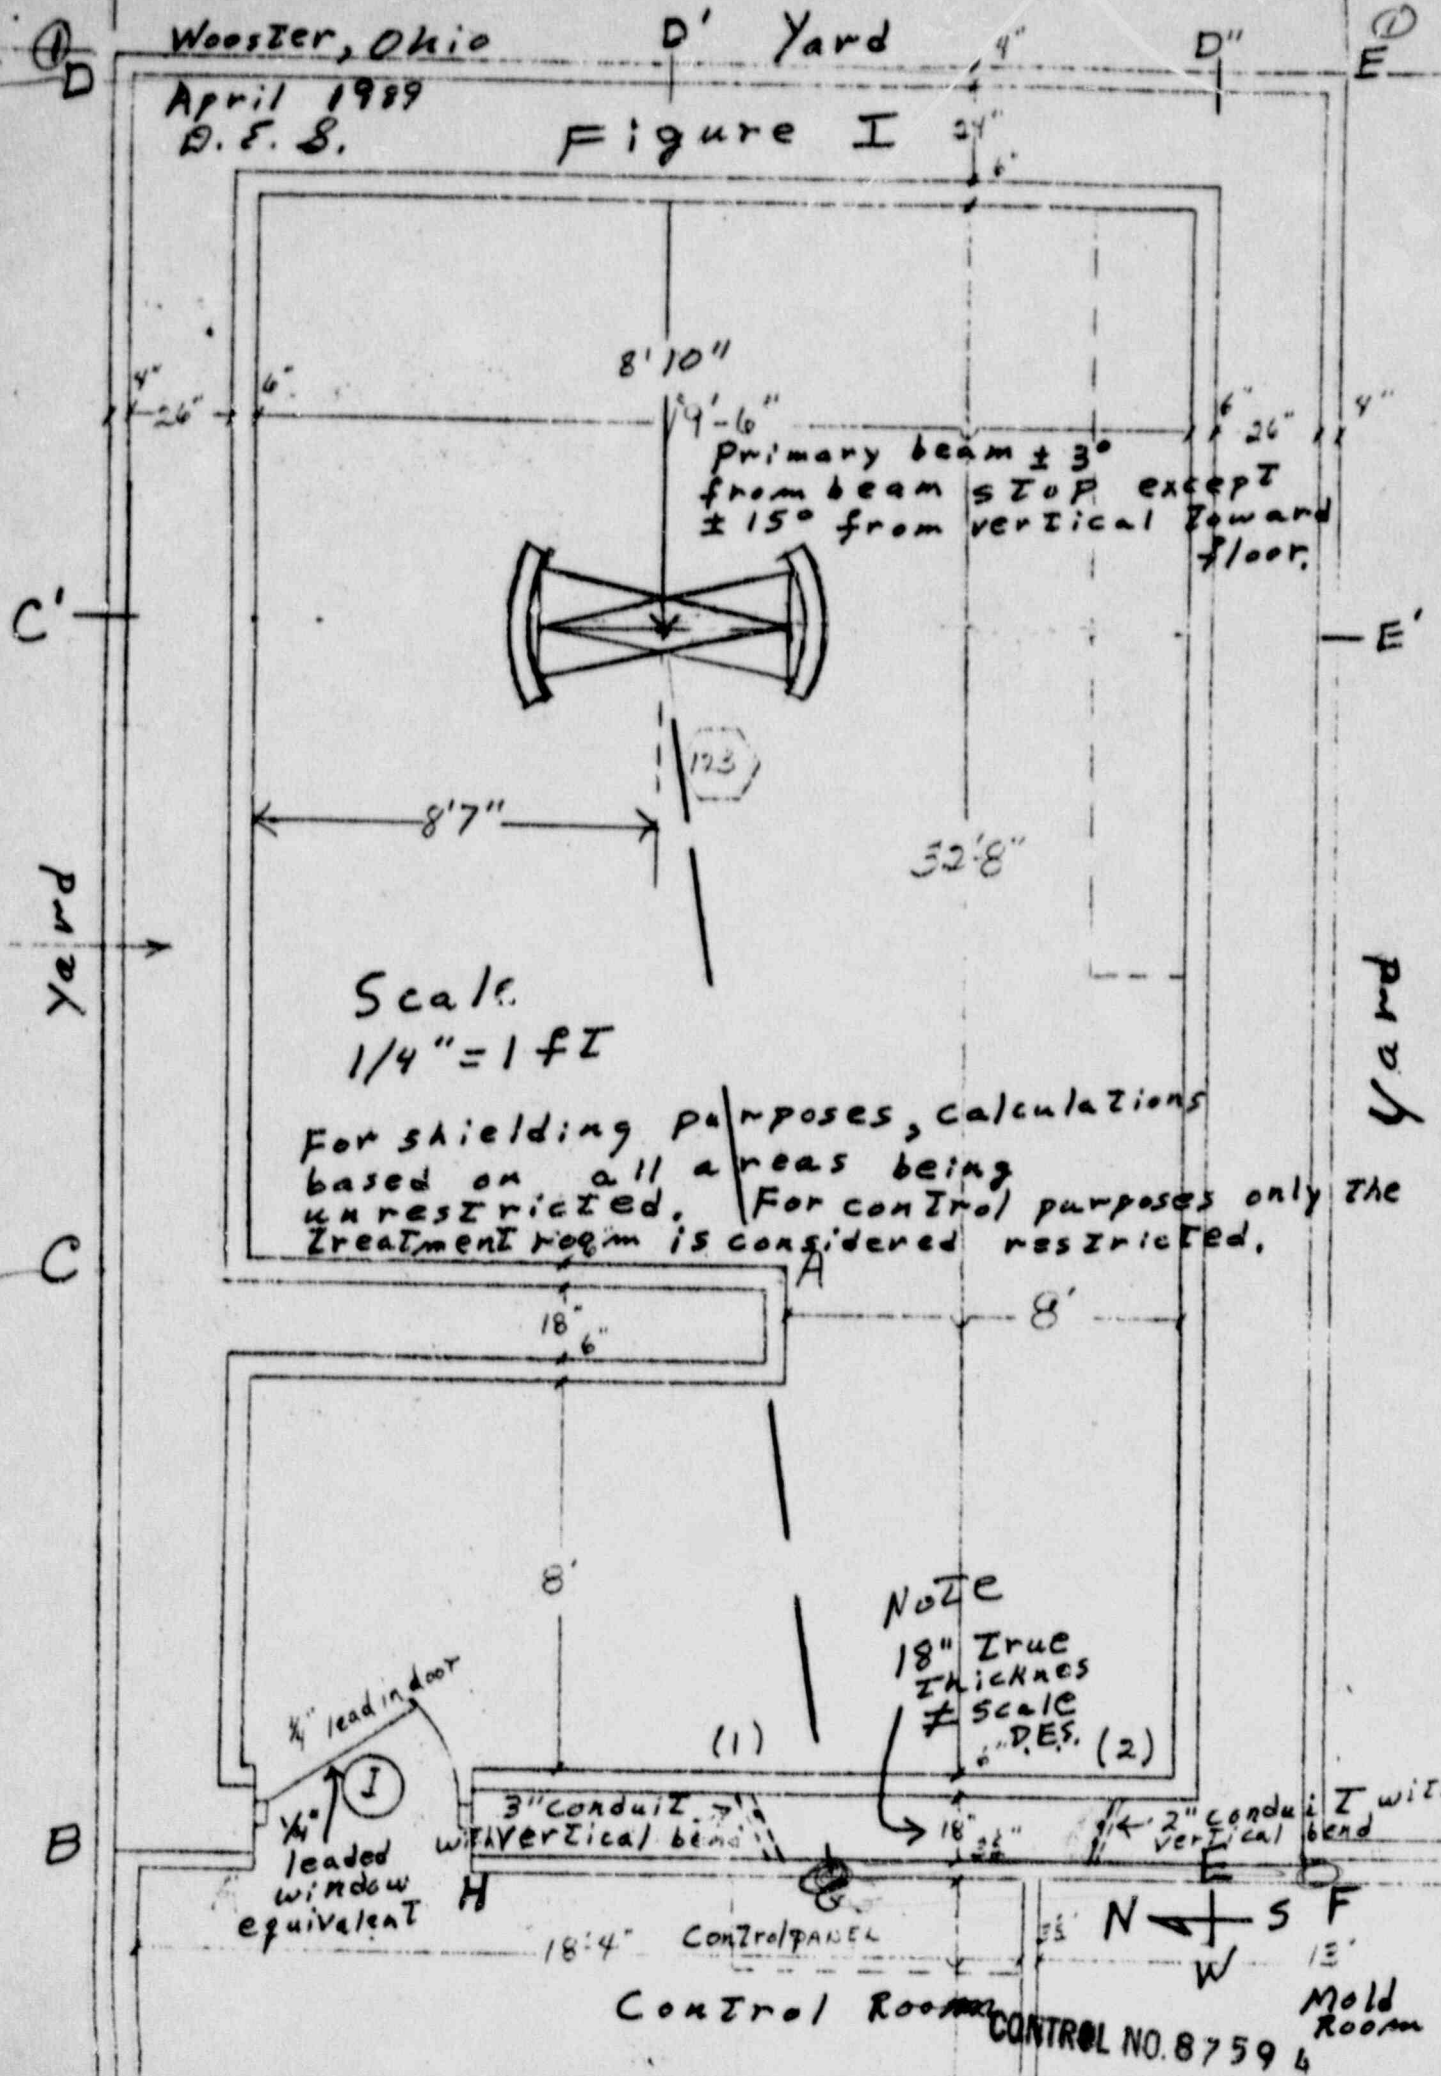 Wooster, Ohio
D' Yard
4"
D"
D
E
April 1989
D. E. S.
Figure I
24"
6"
8' 10"
4"
26"
6"
19'-6"
6"
26"
4"
Primary beam ± 3°
from beam stop except
± 15° from vertical toward
floor.
C'
E'
123
8'7"
32'-8"
Yard
Yard
Scale
1/4" = 1 ft
For shielding purposes, calculations
based on all areas being
unrestricted. For control purposes only the
treatment room is considered restricted.
C
A
18"
6"
8'
8'
Note
18" True
Thicknes
≠ scale
D.E.S.
6"
1/4" lead in door
(1)
(2)
I
3" conduit
with vertical bend
18"
2" conduit wit
vertical bend
B
1/4"
leaded
window
equivalent
H
G
E
F
N S
W
18'-4"
Control PANEL
13'
Mold
Room
Control Room
CONTROL NO. 8759 4